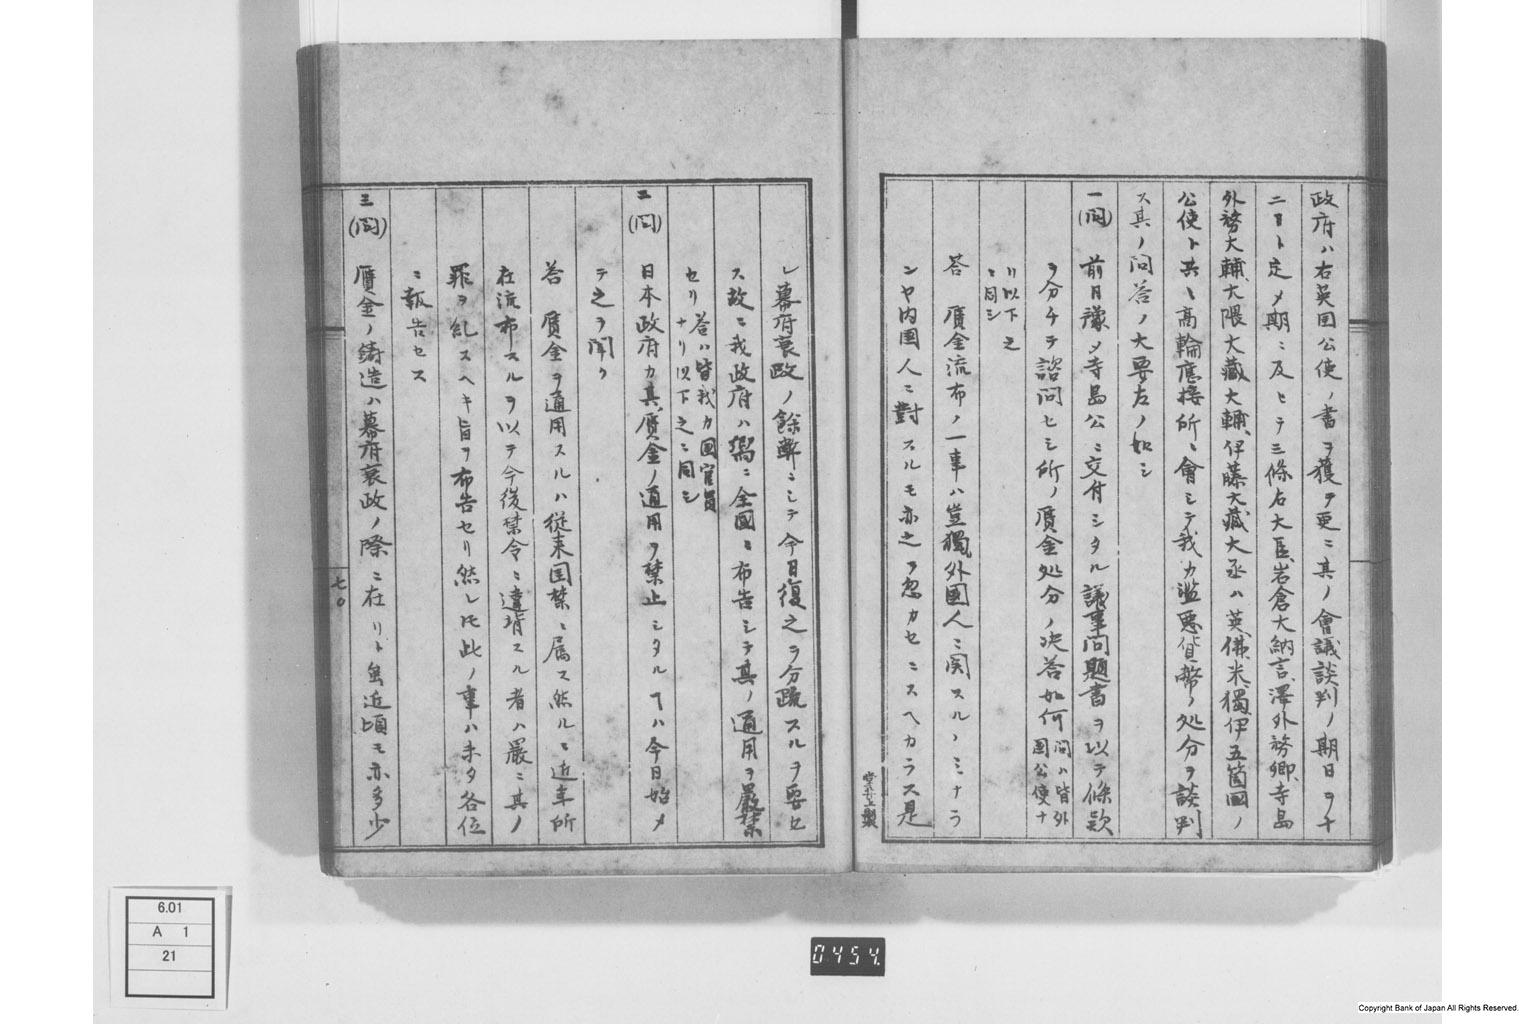 政府ハ右英国公使ノ書ヲ獲テ更ニ其ノ會議談判ノ期日ヲ十
二日ト定メ期ニ及ヒテ三條右大臣、岩倉大納言、澤外務卿、寺島
外務大輔、大隈大藏大輔、伊藤大藏大丞ハ英、佛、米、獨、伊五箇國ノ
公使ト共ニ高輪應接所ニ會シテ我カ濫悪貨幣ノ処分ヲ談判
ス其ノ問答ノ大要左ノ如シ
一(問) 前日豫メ寺島公ニ交付シタル議事問題書ヲ以テ條欵
ヲ分チテ諮問セシ所ノ贋金処分ノ决答如何 問ハ皆外國公使ナ
リ以下之ニ同シ
答 贋金流布ノ一事ハ豈獨外國人ニ関スルノミナラ
ンヤ内国人ニ對スルモ亦之ヲ忽カセニスヘカラス是
堂井上製
レ幕府衰政ノ餘弊ニシテ今日復之ヲ分疏スルヲ要セ
ス故ニ我政府ハ嚮ニ全國ニ布告シテ其ノ通用ヲ嚴禁
セリ 答ハ皆我カ国官員ナリ以下之ニ同シ
二(問) 日本政府カ其贋金ノ通用ヲ禁止シタルヿハ今日始メ
テ之ヲ聞ク
答 贋金ヲ通用スルハ従来国禁ニ属ス然ルニ近年所
在流布スルヲ以テ今後禁令ニ違背スル者ハ嚴ニ其ノ
罪ヲ糺スヘキ旨ヲ布告セリ然レ𪜈此ノ事ハ未タ各位
ニ報告セス
三(問) 贋金ノ鋳造ハ幕府衰政ノ際ニ在リト虽近頃モ亦多少
七〇
6.01
A 1
21
0454.
Copyright Bank of Japan All Rights Reserved.